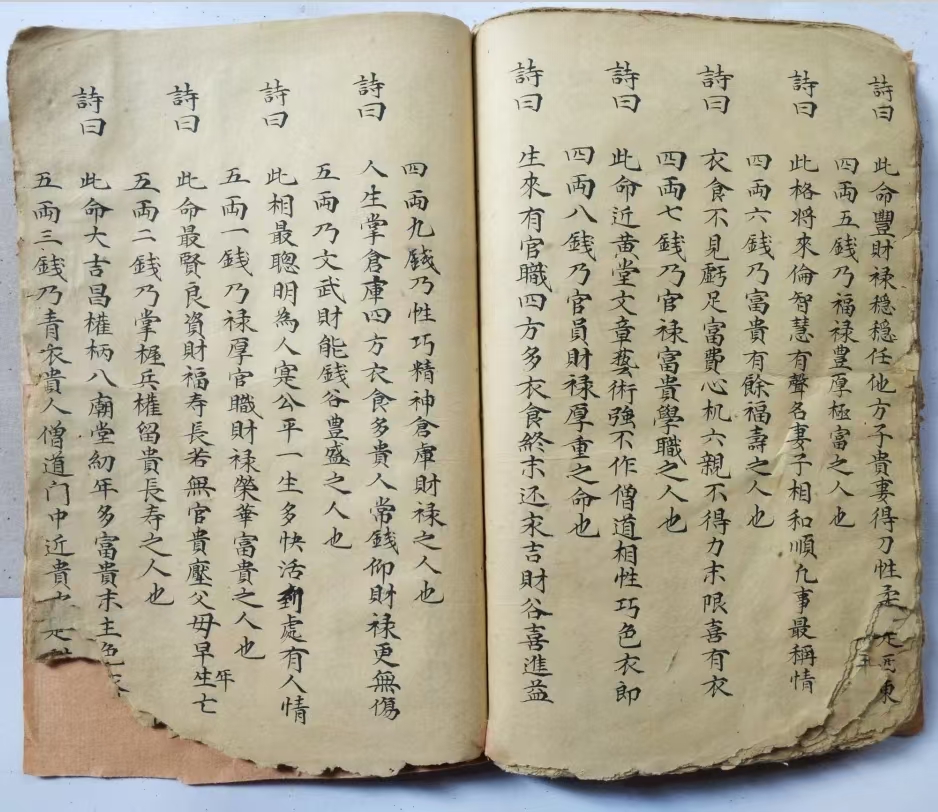 詩曰
此命豐財禄穏穏任他方子貴妻得力性柔
四両五銭乃福禄豊厚極富之人也
詩曰
此格将來倫智慧有聲名妻子相和順九事最稱情
四両六銭乃富貴有餘福壽之人也
詩曰
衣食不見虧足富費心机六親不得力末限喜有衣
四両七銭乃官禄富貴學職之人也
詩曰
此命近黄堂文章藝術強不作僧道相性巧色衣即
四両八銭乃官員財禄厚重之命也
詩曰
生來有官職四方多衣食終末还求吉財谷喜進益
四両九銭乃性巧精神倉庫財禄之人也
詩曰
人生掌倉庫四方衣食多貴人常錢仰財禄更無傷
五両乃文武財能銭谷豊盛之人也
詩曰
此相最聰明為人寔公平一生多快活到處有人情
五両一銭乃禄厚官職財禄榮華富貴之人也
詩曰
此命最賢良資財福寿長若無官貴壓父母早年生亡
五両二銭乃掌握兵權留貴長寿之人也
詩曰
此命大吉昌權柄八廟堂幼年多富貴末主色
五両三銭乃青衣貴人僧道门中近貴